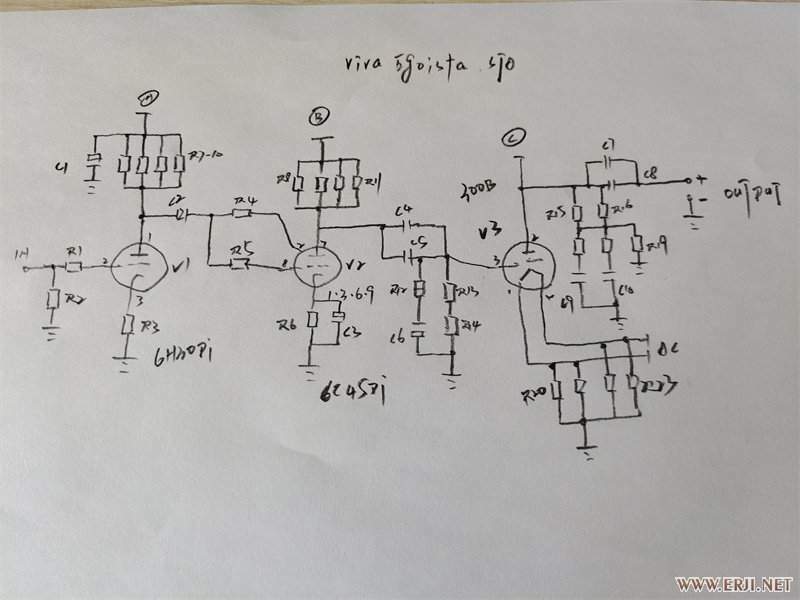 viva egoista sjo
A
B
C
C1
R7-10
R8
R11
C7
C8
300B
+
-
OUTPUT
C2
R4
C4
R15
R16
1
IN
R1
2
V1
R5
V2
C5
V3
3
R19
R2
3
R3
1.3.6.9
R12
R13
C9
C10
R6
C3
C6
R14
6H30Pi
6C45Pi
DC
R20
R23
WWW.ERJI.NET